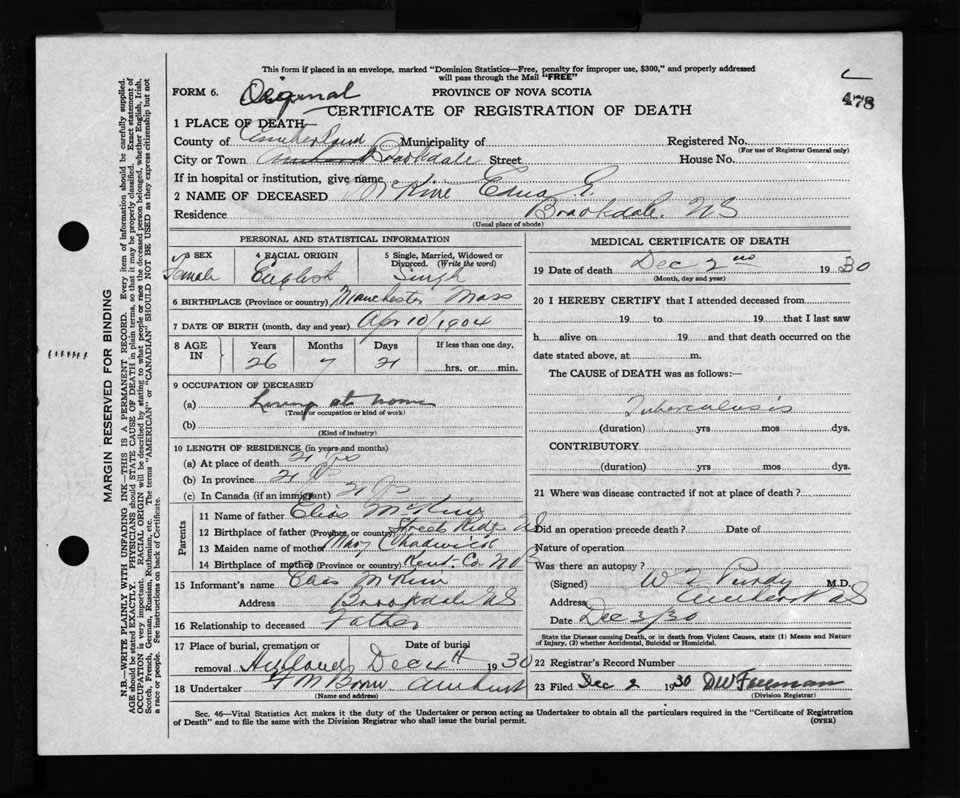 This form if placed in an envelope, marked "Dominion Statistics—Free, penalty for improper use, $300," and properly addressed
will pass through the Mail "FREE"
FORM 6. Original PROVINCE OF NOVA SCOTIA
478
CERTIFICATE OF REGISTRATION OF DEATH
1 PLACE OF DEATH—
County of Cumberland Municipality of Registered No.
(For use of Registrar General only)
City or Town Amherst Brookdale Street House No.
If in hospital or institution, give name
2 NAME OF DECEASED Edna G.
Residence Brookdale. NS
(Usual place of abode)
PERSONAL AND STATISTICAL INFORMATION
3 SEX 4 RACIAL ORIGIN 5 Single, Married, Widowed or
Divorced. (Write the word)
Female English Single
6 BIRTHPLACE (Province or country) Manchester Mass
7 DATE OF BIRTH (month, day and year) Apr 10/1904
8 AGE IN Years Months Days If less than one day,
26 7 21 hrs. or min.
9 OCCUPATION OF DECEASED
(a) Living at home
(Trade or occupation or kind of work)
(b)
(Kind of industry)
10 LENGTH OF RESIDENCE (in years and months)
(a) At place of death 21
(b) In province 21
(c) In Canada (if an immigrant) 21
Parents
11 Name of father Elias
12 Birthplace of father (Province or country) Streets Ridge NS
13 Maiden name of mother Mary Chadwick
14 Birthplace of mother (Province or country) Kent. Co. NB
15 Informant's name
Address Brookdale NS
16 Relationship to deceased Father
17 Place of burial, cremation or Date of burial
removal Highland Dec 4th 1930
18 Undertaker F M Brown Amherst
(Name and address)
MEDICAL CERTIFICATE OF DEATH
19 Date of death Dec 2nd 1930
(Month, day and year)
20 I HEREBY CERTIFY that I attended deceased from
19 to 19 that I last saw
h alive on 19 and that death occurred on the
date stated above, at m.
The CAUSE of DEATH was as follows:—
Tuberculosis
(duration) yrs mos dys.
CONTRIBUTORY
(duration) yrs mos dys.
21 Where was disease contracted if not at place of death?
Did an operation precede death? Date of
Nature of operation
Was there an autopsy?
(Signed) Purdy M.D.
Address Amherst NS
Date Dec 3/30
State the Disease causing Death, or in death from Violent Causes, state (1) Means and Nature
of Injury, (2) whether Accidental, Suicidal or Homicidal.
22 Registrar's Record Number
23 Filed Dec 2 1930 DW Freeman
(Division Registrar)
Sec. 46—Vital Statistics Act makes it the duty of the Undertaker or person acting as Undertaker to obtain all the particulars required in the "Certificate of Registration
of Death" and to file the same with the Division Registrar who shall issue the burial permit. (OVER)
MARGIN RESERVED FOR BINDING
N.B.—WRITE PLAINLY WITH UNFADING INK—THIS IS A PERMANENT RECORD. Every item of information should be carefully supplied.
AGE should be stated EXACTLY. PHYSICIANS should STATE CAUSE OF DEATH in plain terms, so that it may be properly classified. Exact statement of
OCCUPATION is very important. RACIAL ORIGIN will be described by stating to what people or race the deceased person belonged, whether English, Irish,
Scotch, French, German, Russian, Ruthenian, etc. The terms "AMERICAN" or "CANADIAN" SHOULD NOT BE USED as they express citizenship but not
a race or people. See instructions on back of Certificate.